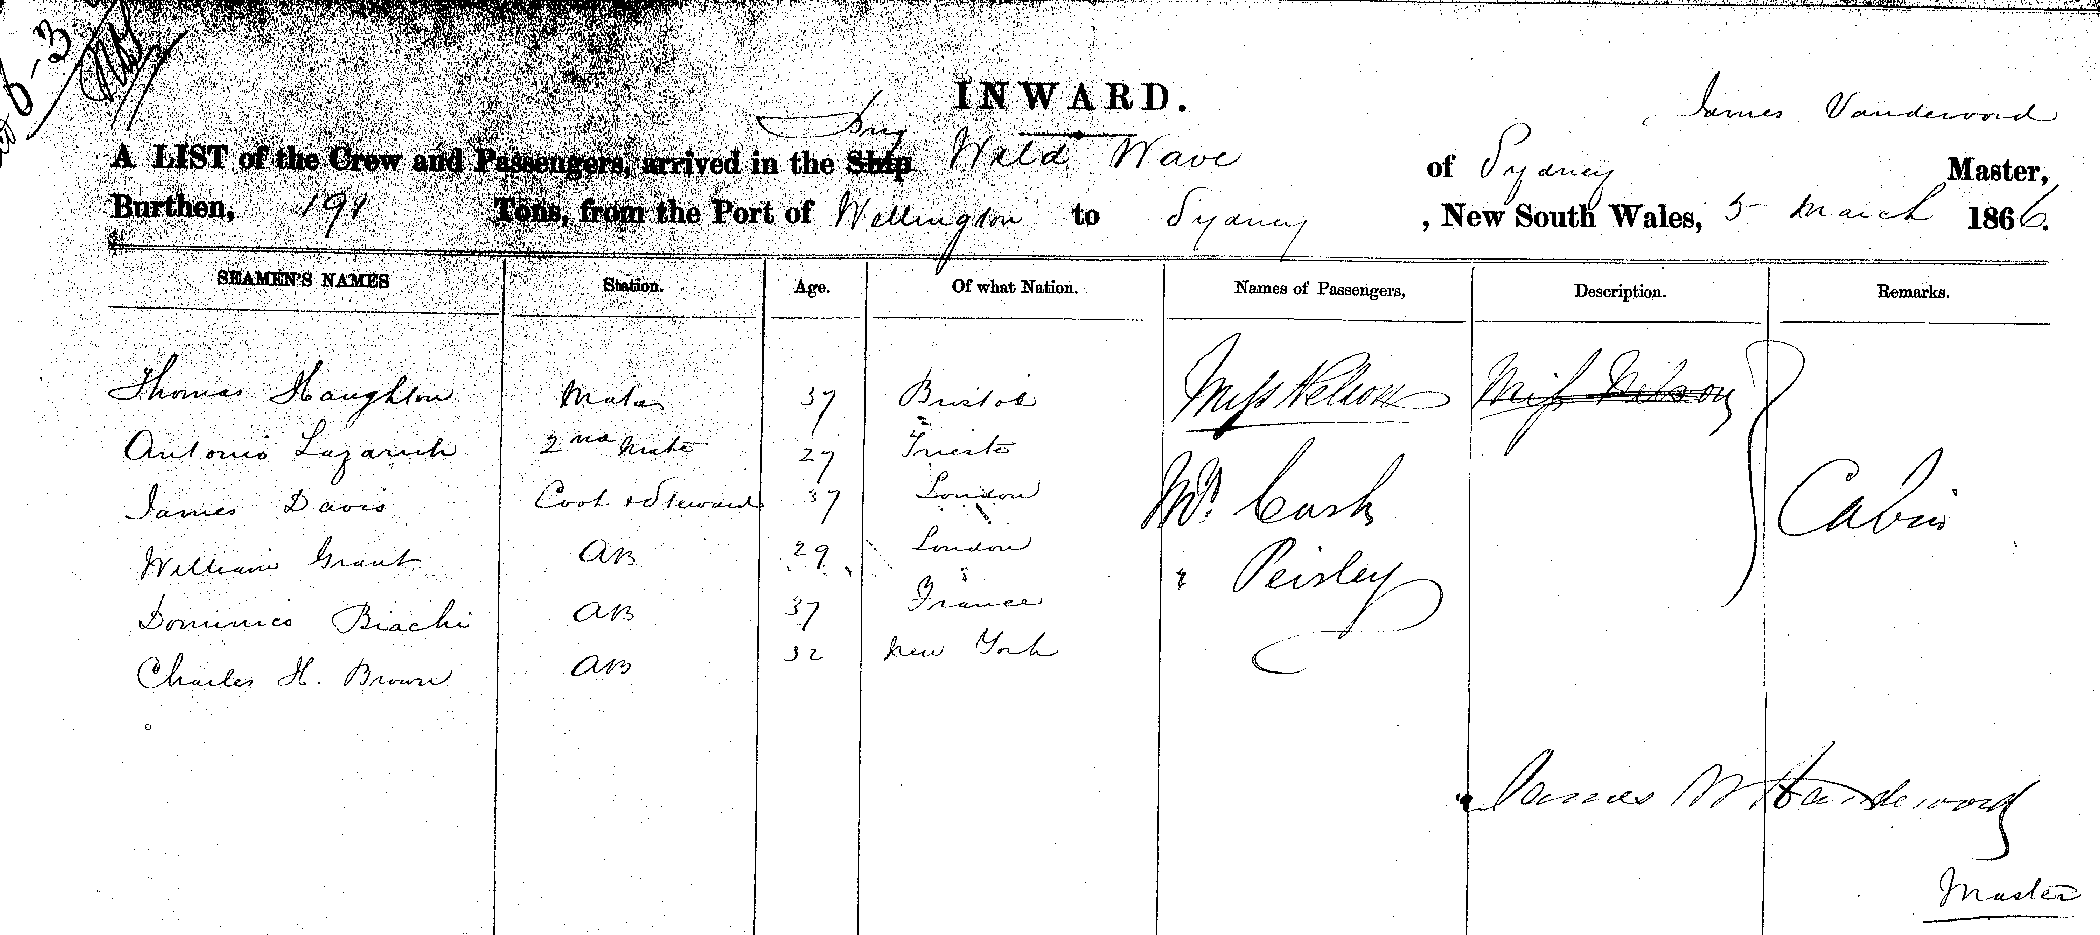 6-3
INWARD.
James Vanderword
Brig
A LIST of the Crew and Passengers, arrived in the Ship Wild Wave of Sydney Master,
Burthen, 191 Tons, from the Port of Wellington to Sydney, New South Wales, 5 March 1866.
SEAMEN'S NAMES Station. Age. Of what Nation. Names of Passengers, Description. Remarks.
Thomas Haughton Mate 37 Bristol Miss Nelson Miss Nelson
Antonio Lazarich 2nd Mate 27 Trieste
James Davis Cook & Steward 37 London Mr. Cash Cabin
William Grant AB 29 London
Dominico Biachi AB 37 France " Peisley
Charles H. Brown AB 32 New York
James Vanderword
Master